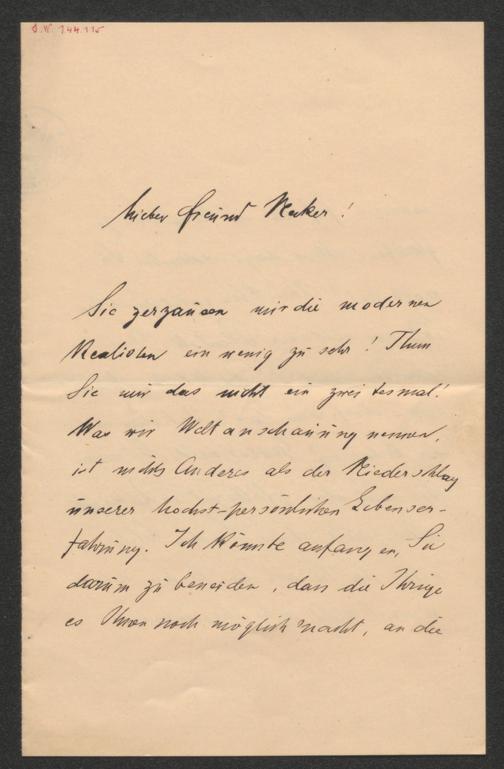 J.N. 144.115
Lieber Freund Necker!
Sie zerzausen mir die modernen
Realisten ein wenig zu sehr! Thun
Sie mir das nicht ein zweitesmal!
Was wir Weltanschauung nennen,
ist nichts Anderes als der Niederschlag
unserer höchst-persönlichen Lebenser-
fahrung. Ich könnte anfangen, Sie
darum zu beneiden, dass die Ihrige
es Ihnen noch möglich macht, an die